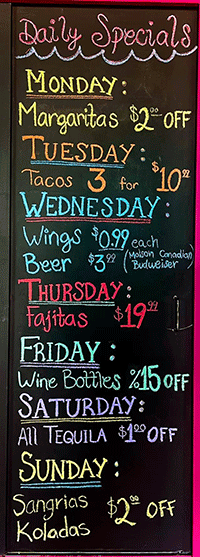 Daily Specials
MONDAY:
Margaritas $2.00 OFF
TUESDAY:
Tacos 3 for $10.99
WEDNESDAY:
Wings $0.99 each
Beer $3.99 (Molson Canadian
Budweiser)
THURSDAY:
Fajitas $19.99
FRIDAY:
Wine Bottles %15 OFF
SATURDAY:
All TEQUILA $1.00 OFF
SUNDAY:
Sangrias
Koladas $2.00 OFF